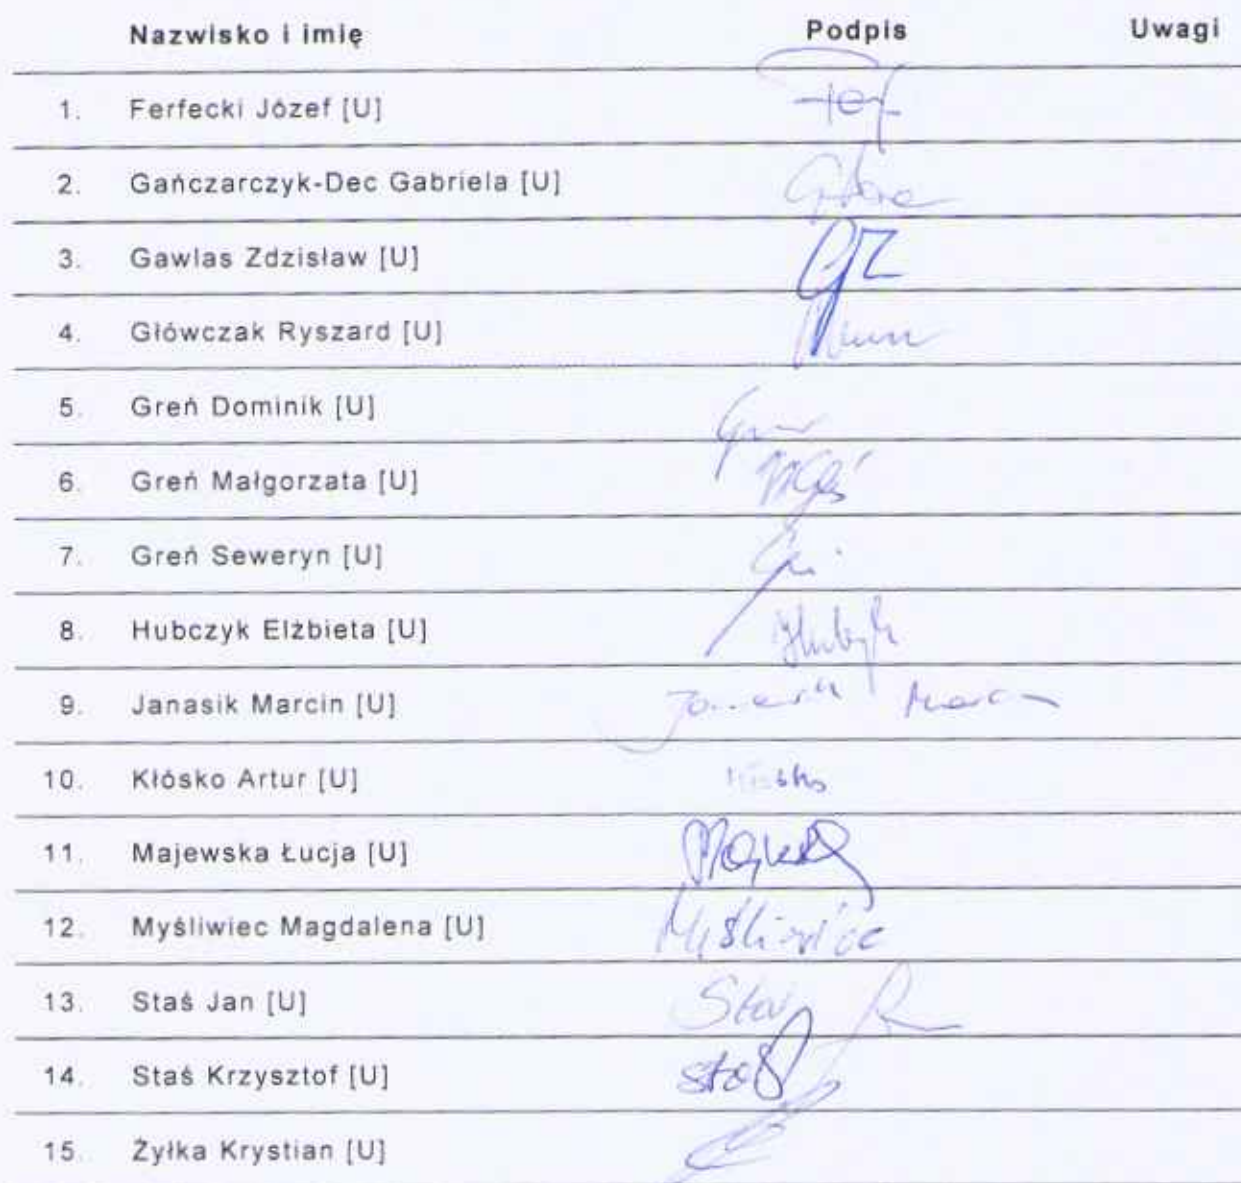 Nazwisko i imię Podpis Uwagi
1. Ferfecki Józef [U]
2. Gańczarczyk-Dec Gabriela [U]
3. Gawlas Zdzisław [U] GZ
4. Główczak Ryszard [U]
5. Greń Dominik [U]
6. Greń Małgorzata [U]
7. Greń Seweryn [U]
8. Hubczyk Elżbieta [U]
9. Janasik Marcin [U]
10. Kłósko Artur [U]
11. Majewska Łucja [U]
12. Myśliwiec Magdalena [U] Myśliwiec
13. Staś Jan [U] Staś
14. Staś Krzysztof [U] Staś
15. Żyłka Krystian [U]